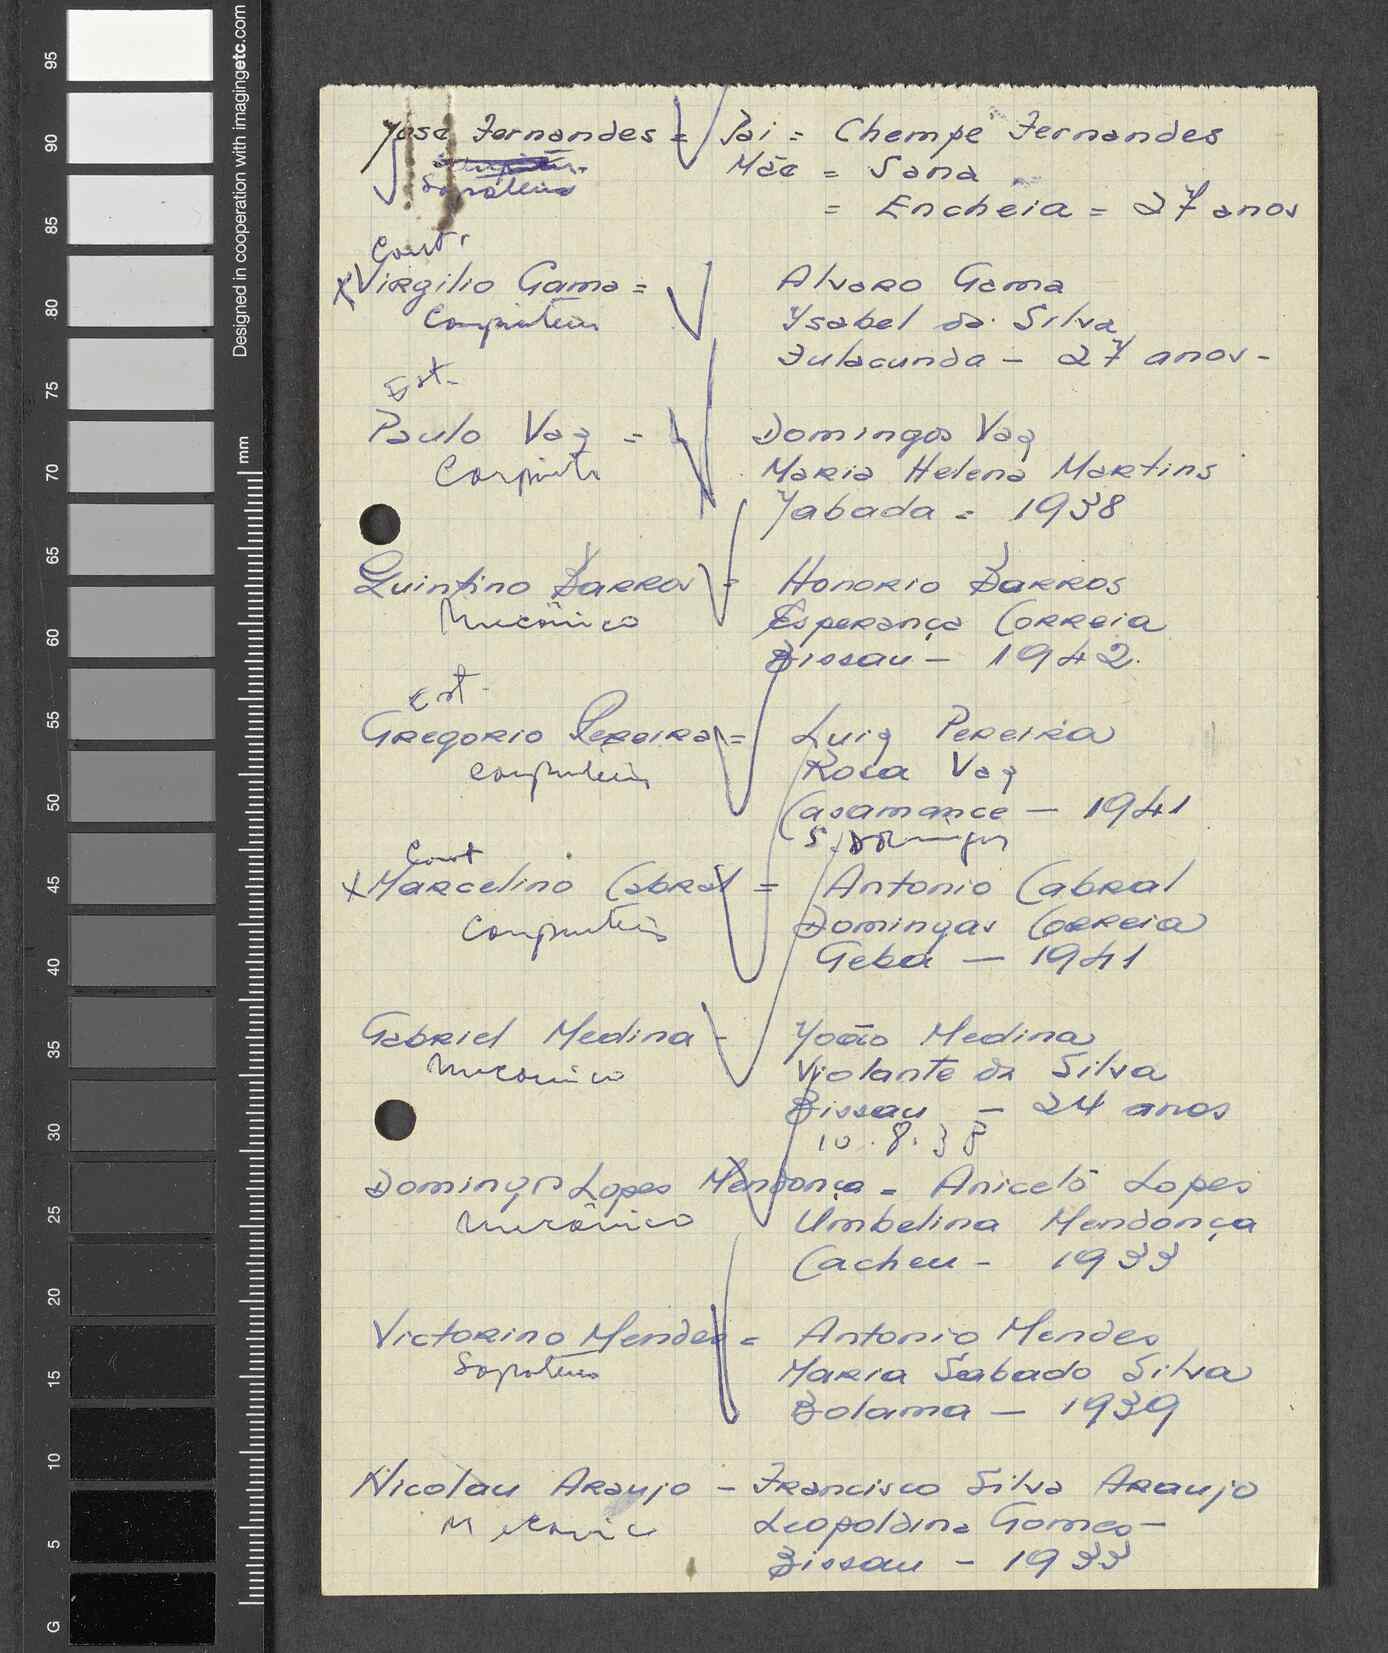 Designed in cooperation with imagingetc.com
mm
95
90
85
80
75
70
65
60
55
50
45
40
35
30
25
20
15
10
5
G
José Fernandes = Pai = Chempe Fernandes
Mãe = Sana
Sapateiro
= Encheia = 27 anos
Const.
x Virgilio Gama = Alvaro Gama
Carpinteiro Ysabel da Silva
Fulacunda - 27 anos -
Est-
Paulo Vaz = Domingos Vaz
Carpint. Maria Helena Martins
Jabada = 1938
Quintino Barros = Honorio Barros
Mecânico Esperança Correia
Bissau - 1942.
Est-
Gregorio Pereira = Luiz Pereira
Carpinteiro Rosa Vaz
Casamance - 1941
S. Domingos
Const
x Marcelino Cabral = Antonio Cabral
Carpinteiro Domingas Correia
Geba - 1941
Gabriel Medina - Yoão Medina
Mecanico Violante da Silva
Bissau - 24 anos
10.8.38
Domingos Lopes Mendonça = Aniceto Lopes
Mecânico Umbelina Mendonça
Cacheu - 1933
Victorino Mendes = Antonio Mendes
Sapateiro Maria Sabado Silva
Bolama - 1939
Nicolau Araujo - Francisco Silva Araujo
Mecanic Leopoldina Gomes -
Bissau - 1933